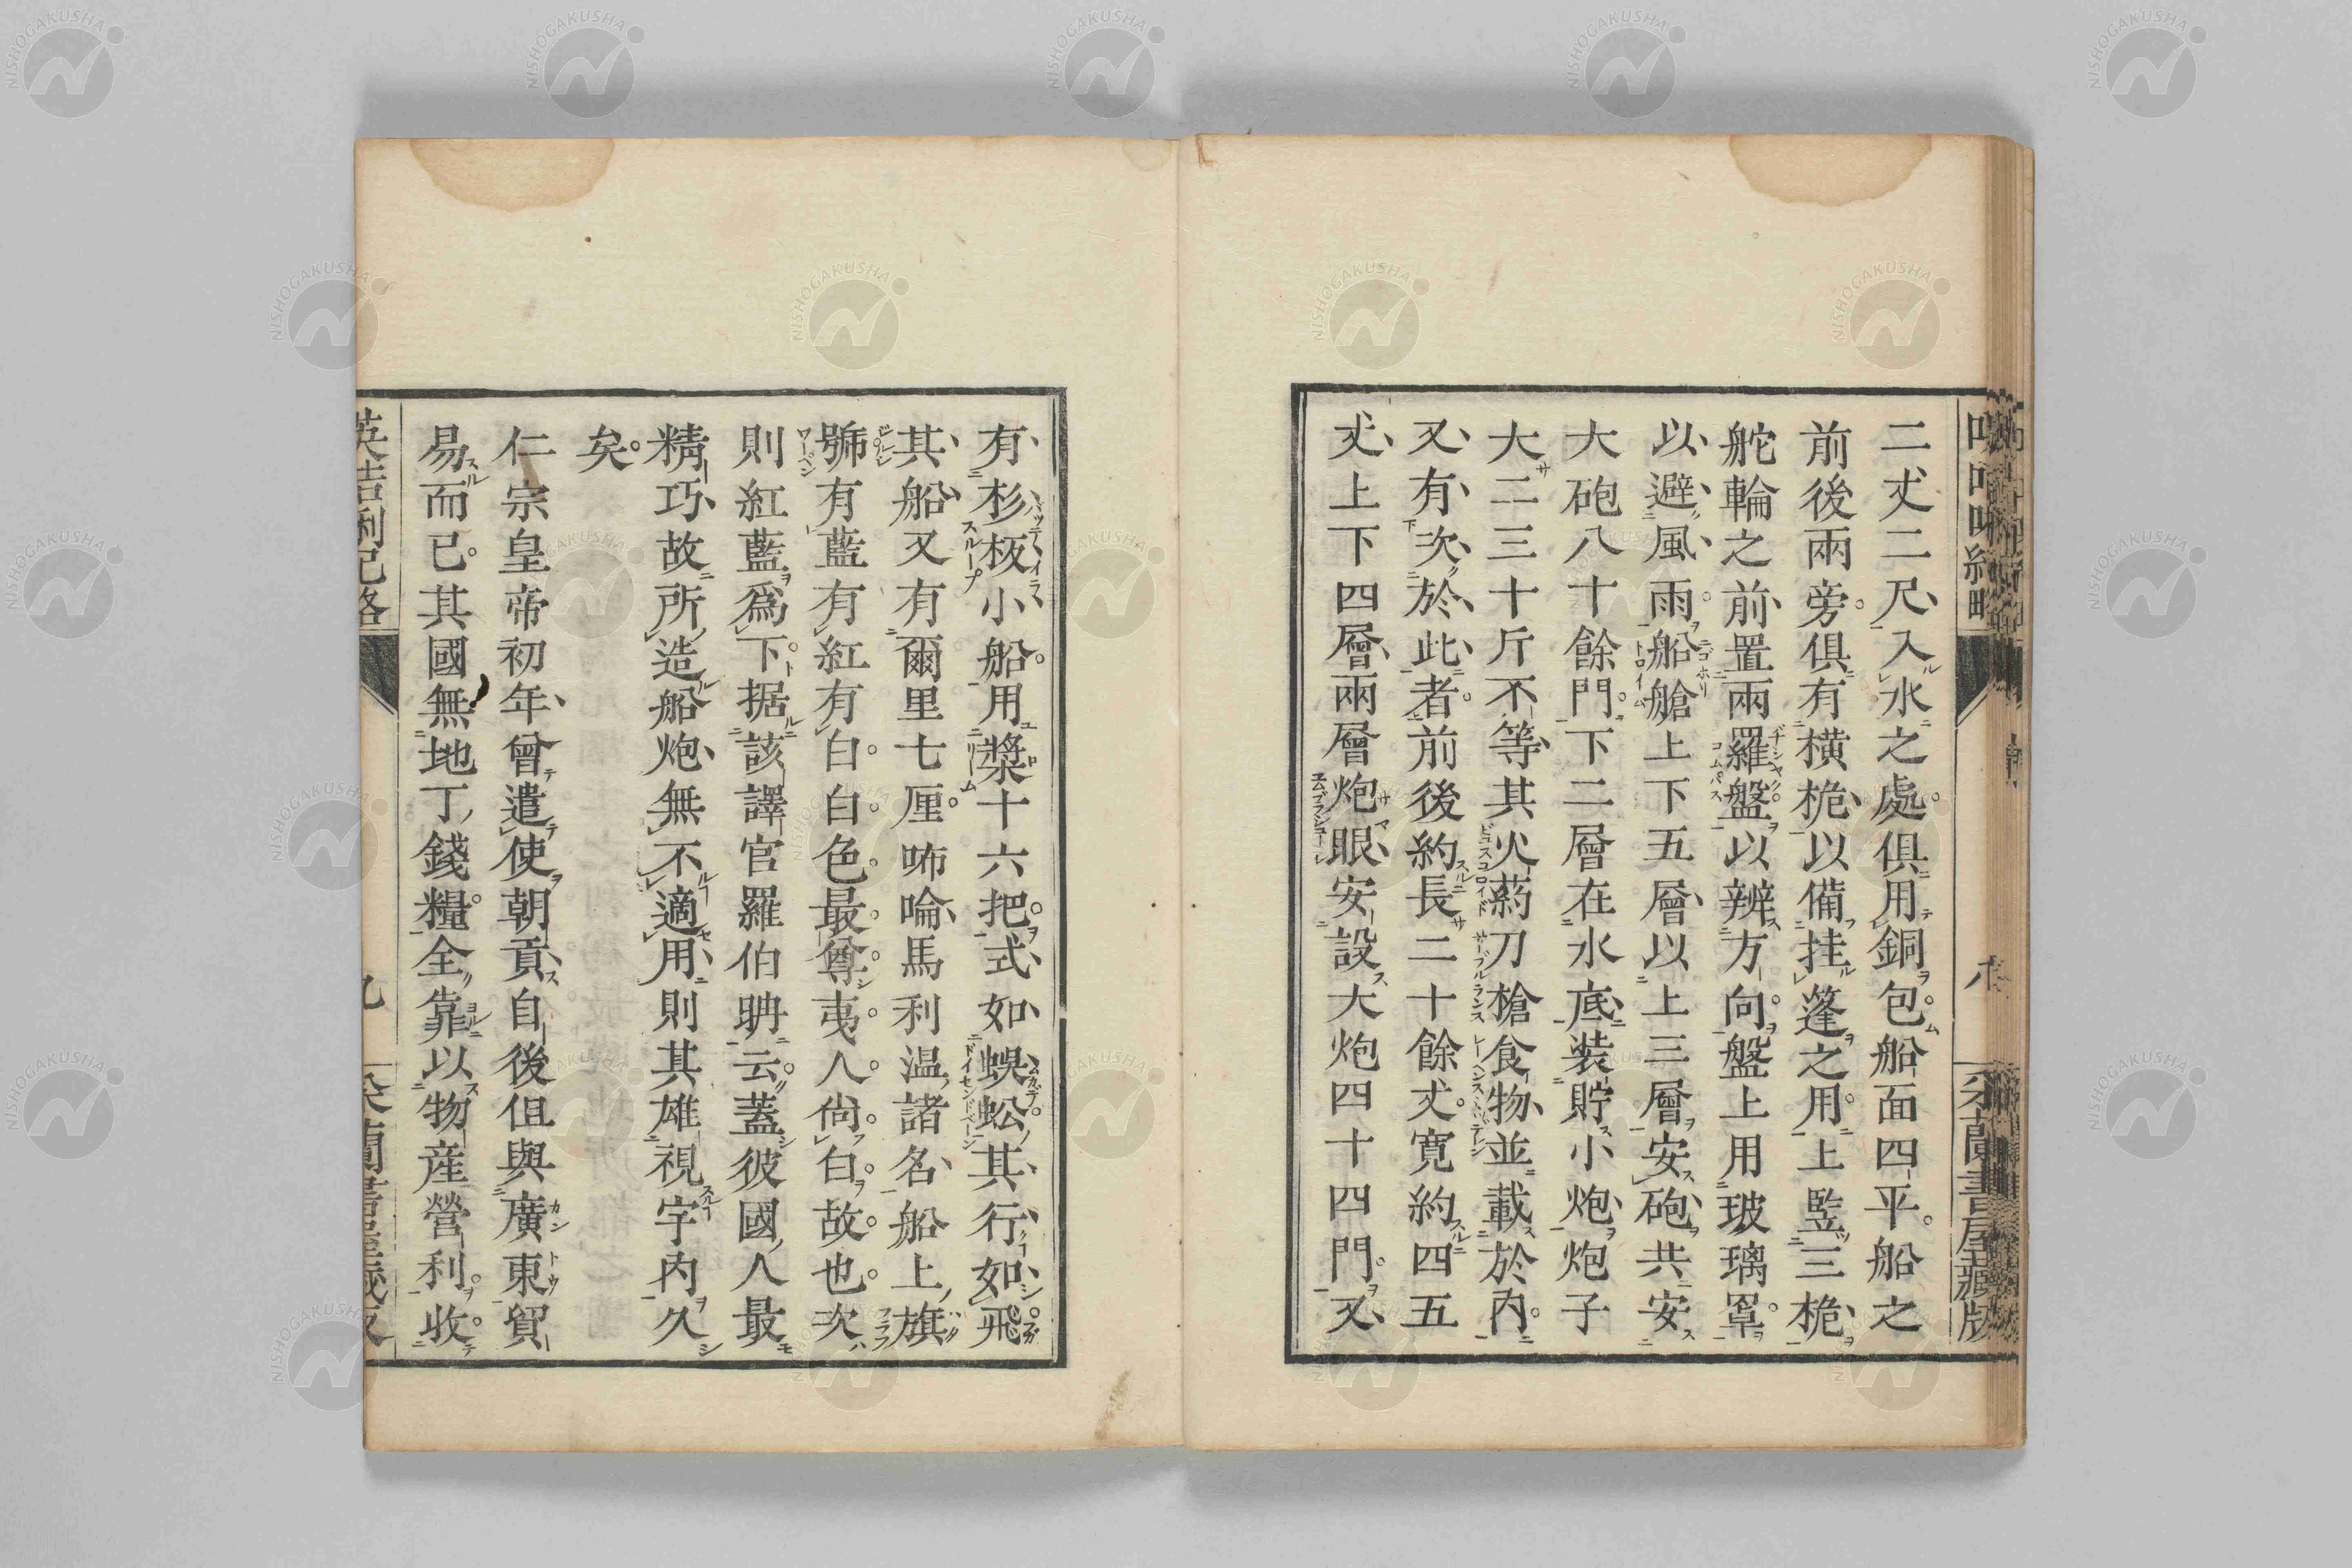 二丈二尺入水之處俱用銅包船面四平船之
前後兩旁俱有橫桅以備挂篷之用上竪三桅
舵輪之前置兩羅盤以辨方向盤上用玻璃罩
以避風雨船艙上下五層以上三層安砲共安
大砲八十餘門下二層在水底裝貯小炮炮子
大二三十斤不等其火藥刀槍食物並載於內
又有次於此者前後約長二十餘丈寬約四五
丈上下四層兩層炮眼安設大炮四十四門又
有杉板小船用槳十六把式如蜈蚣其行如飛
其船又有爾里七厘咘噏馬利温諸名船上旗
號有藍有紅有白白色最尊夷人尙白故也次
則紅藍爲下据該譯官羅伯聃云蓋彼國人最
精巧故所造船炮無不適用則其雄視宇內久
矣
仁宗皇帝初年曾遣使朝貢自後但與廣東貿
易而已其國無地丁錢糧全靠以物産營利收
英吉利紀略
九
NISHOGAKUSHA